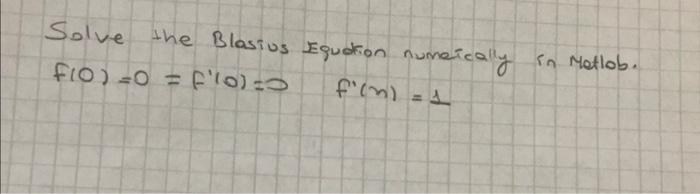 Solve the Blasius Equation numerically in Matlab.
f(0) = 0 = f'(0) = 0 f'(n) = 1